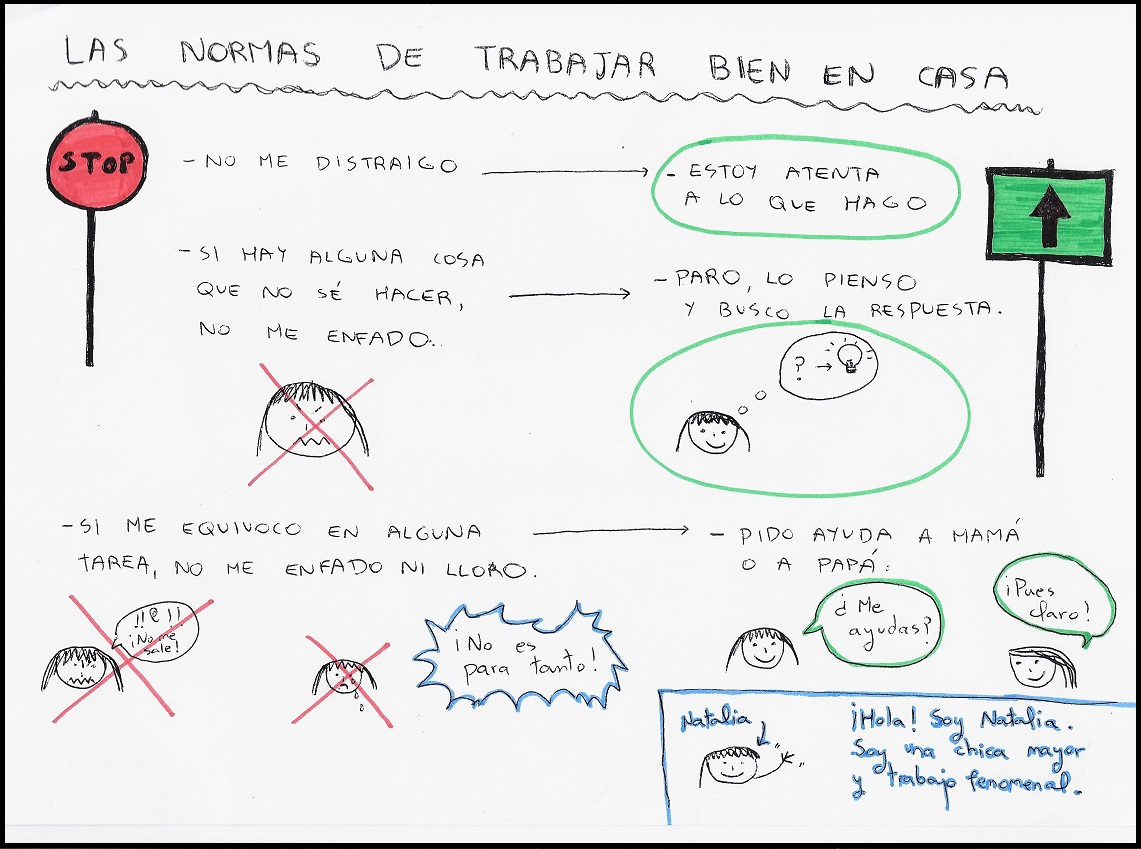 LAS NORMAS DE TRABAJAR BIEN EN CASA
STOP
- NO ME DISTRAIGO
- ESTOY ATENTA
A LO QUE HAGO
- SI HAY ALGUNA COSA
QUE NO SÉ HACER,
NO ME ENFADO..
- PARO, LO PIENSO
Y BUSCO LA RESPUESTA.
?
- SI ME EQUIVOCO EN ALGUNA
TAREA, NO ME ENFADO NI LLORO.
- PIDO AYUDA A MAMÁ
O A PAPÁ:
¡No me
sale!
¡No es
para tanto!
¿Me
ayudas?
¡Pues
claro!
Natalia
¡Hola! Soy Natalia.
Soy una chica mayor
y trabajo fenomenal.